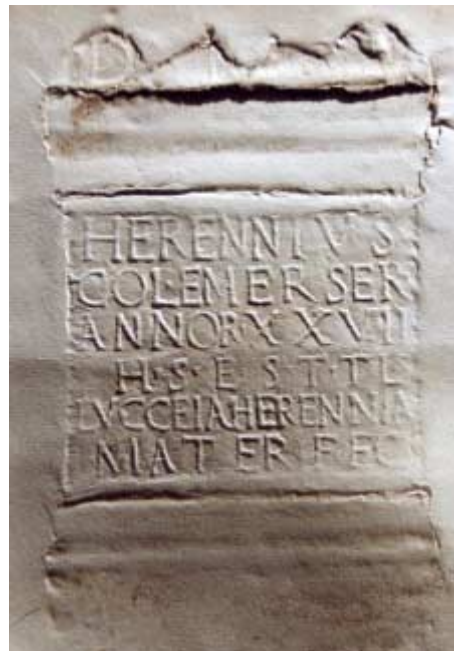 D M
HERENNIVS
COLEMERSER
ANNORXXVII
H·S·E·S·T·T·L
LVCCEIAHERENNIA
MATER FEC